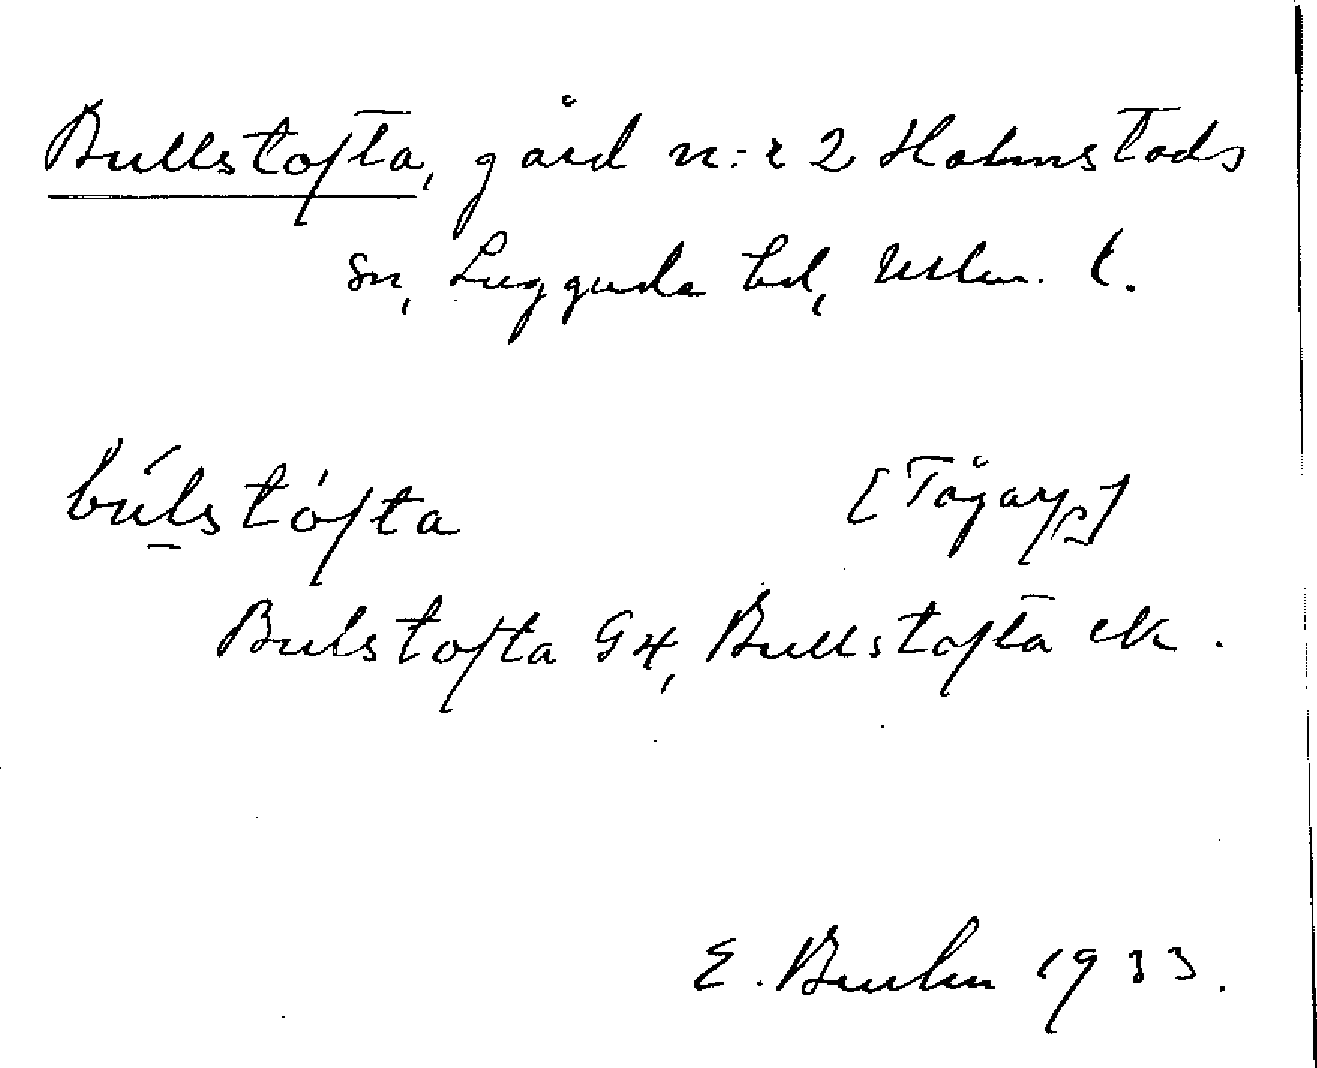 Bullstofta, gård n:r 2 Halmstads
sn, Luggude hd, Mlm. l.
búlstófta [Tågarp]
Bulstofta G4, Bullstofta ek.
E. 1933.